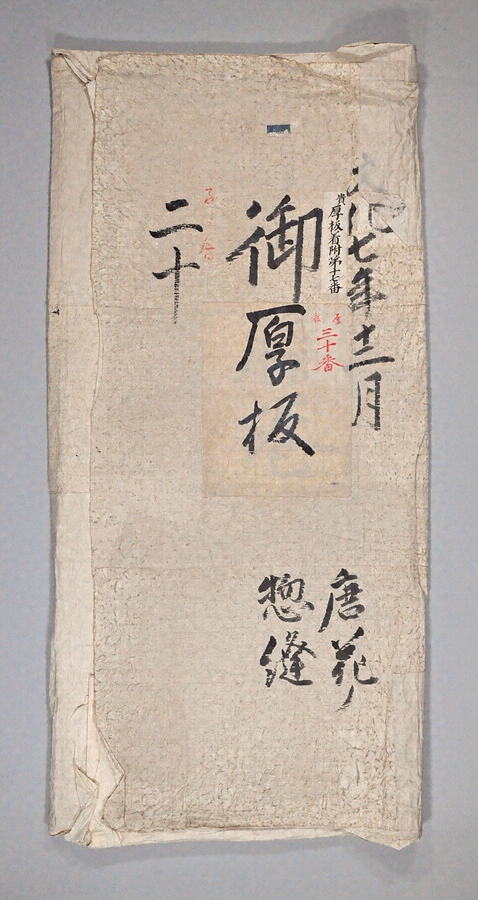 文化七年十二月
貴厚板有附第十七番
三十番
御厚板
唐花
惣縫
二十